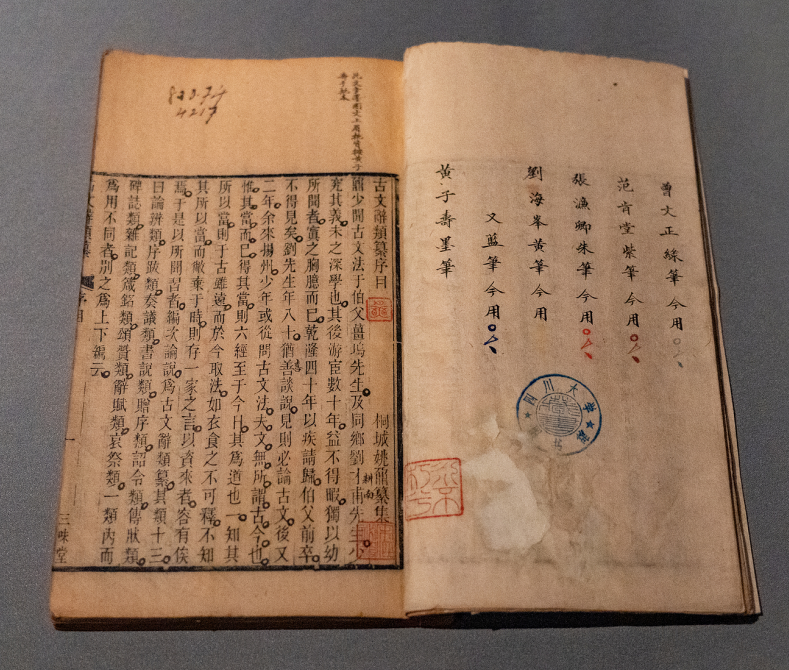 曾文正綠筆 今用
范肯堂紫筆 今用
張濂卿朱筆 今用
劉海峯黃筆 今用
又藍筆 今用
黃子壽墨筆
四川大學
823.74
4217
古文辭類纂序目 桐城姚鼐纂集
鼐少聞古文法于伯父薑塢先生及同鄉劉才甫先生少
耕南
究其義未之深學也其後游宦數十年益不得暇獨以幼
所聞者寘之胸臆而已乾隆四十年以疾請歸伯父前卒
不得見矣劉先生年八十猶善談說見則必論古文後又
二年余來揚州少年或從問古文法夫文無所謂古今也
惟其當而已得其當則六經至于今日其爲道也一知其
所以當則于古雖遠而於今取法如衣食之不可釋不知
其所以當而敝棄于時則存一家之言以資來者容有俟
焉于是以所聞習者編次論說爲古文辭類纂其類十三
曰論辨類序跋類奏議類書說類贈序類詔令類傳狀類
碑誌類雜記類箴銘類頌贊類辭賦類哀祭類一類內而
爲用不同者別之爲上下編云
古文辭類纂 序目 一 三味堂